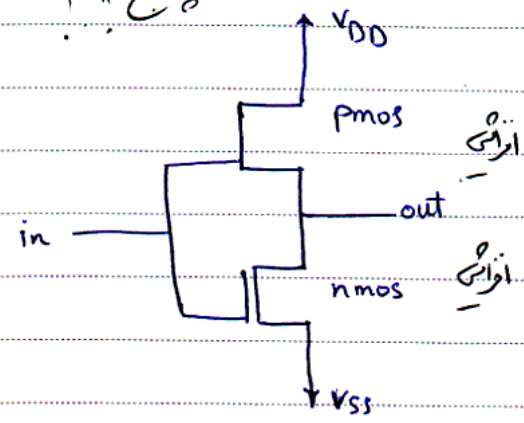 VDD
pmos
افزایشی
out
in
nmos
افزایشی
VSS